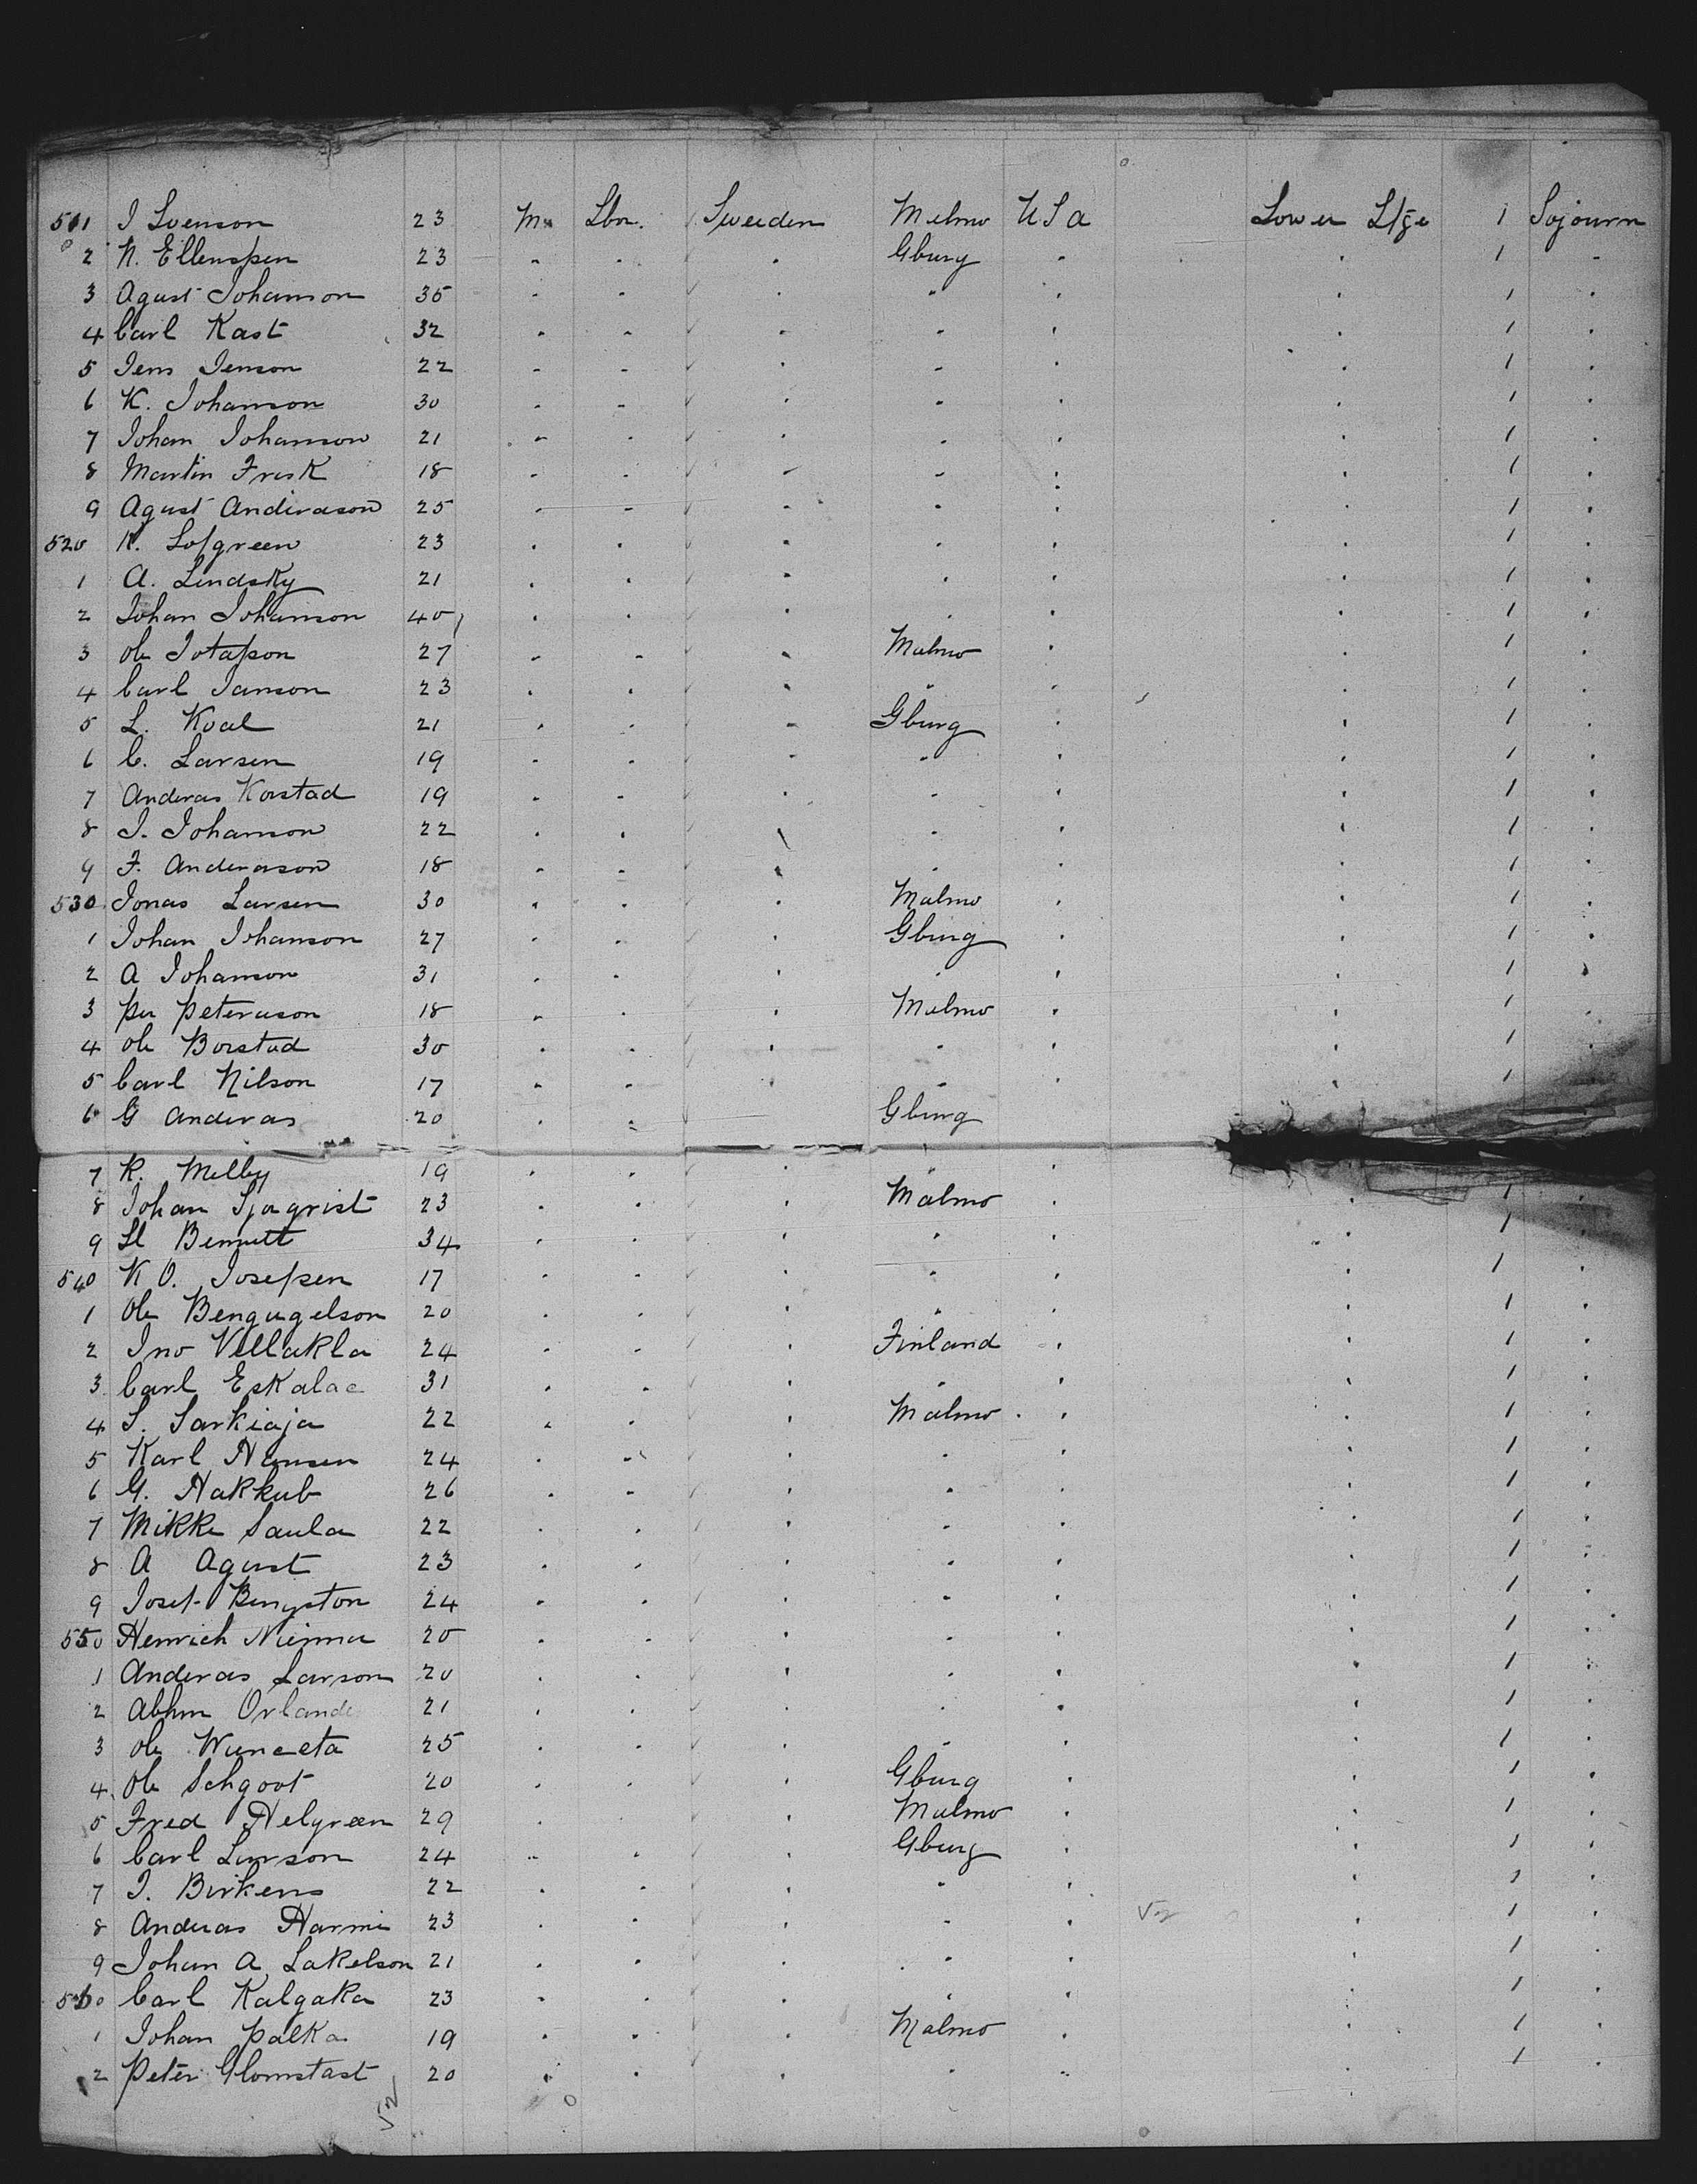 511 J Svenson 23 M Lbr. Sweeden Malmo U S A Lower Stge 1 Sojourn
2 N. Ellenspen 23 - - - Gburg - - 1 -
3 Agust Johanson 35 - - - - - - 1 -
4 Carl Kast 32 - - - - - - 1 -
5 Jens Jenson 22 - - - - - - 1 -
6 K. Johanson 30 - - - - - - 1 -
7 Johan Johanson 21 - - - - - - 1 -
8 Martin Frisk 18 - - - - - - 1 -
9 Agust Anderason 25 - - - - - - 1 -
520 K. Lofgreen 23 - - - - - - 1 -
1 A. Lindsky 21 - - - - - - 1 -
2 Johan Johanson 40 - - - - - - 1 -
3 Ole Jotapson 27 - - - Malmo - - 1 -
4 Carl Janson 23 - - - - - - 1 -
5 L. Koal 21 - - - Gburg - - 1 -
6 C. Larsen 19 - - - - - - 1 -
7 Anderas Korstad 19 - - - - - - 1 -
8 J. Johanson 22 - - - - - - 1 -
9 F. Anderason 18 - - - - - - 1 -
530 Jonas Larsen 30 - - - Malmo - - 1 -
1 Johan Johanson 27 - - - Gburg - - 1 -
2 A Johanson 31 - - - - - - 1 -
3 Per Peterason 18 - - - Malmo - - 1 -
4 Ole Borstad 30 - - - - - - 1 -
5 Carl Nilson 17 - - - - - - 1
6 G Anderas 20 - - Gburg
7 K. Melby 19 - - - - -
8 Johan Sjoqrist 23 - - - Malmo - - 1 -
9 Sl Bennett 34 - - - - - - 1
540 K O. Josefsen 17 - - - - - - 1 -
1 Ole Bengugelson 20 - - - - - - 1 -
2 Jno Vellakla 24 - - - Finland - - 1 -
3 Carl Eskalae 31 - - - - - - 1 -
4 S. Sarkiaja 22 - - - Malmo - - 1 -
5 Karl Hansen 24 - - - - - - 1 -
6 G. Hakkub 26 - - - - - - 1 -
7 Mikke Saula 22 - - - - - - 1 -
8 A Agust 23 - - - - - - 1 -
9 Josef Bengston 24 - - - - - - 1 -
550 Henrich Niemma 20 - - - - - - 1 -
1 Anderas Larson 20 - - - - - - 1 -
2 Abhm Orlande 21 - - - - - - 1 -
3 Ole Wuneeta 25 - - - - - - 1 -
4 Ole Schgoot 20 - - - Gburg - - 1 -
5 Fred Helgreen 29 - - Malmo - - 1 -
6 Carl Larson 24 - - - Gburg - - 1 -
7 J. Birkens 22 - - - - - - 1 -
8 Anderas Harmi 23 - - - - - - 1 -
9 Johan A Lakelson 21 - - - - - - 1 -
560 Carl Kalgaka 23 - - - - - - 1 -
1 Johan Palka 19 - - - Malmo - - 1 -
2 Peter Glomstast 20 - - - - - - 1 -
52